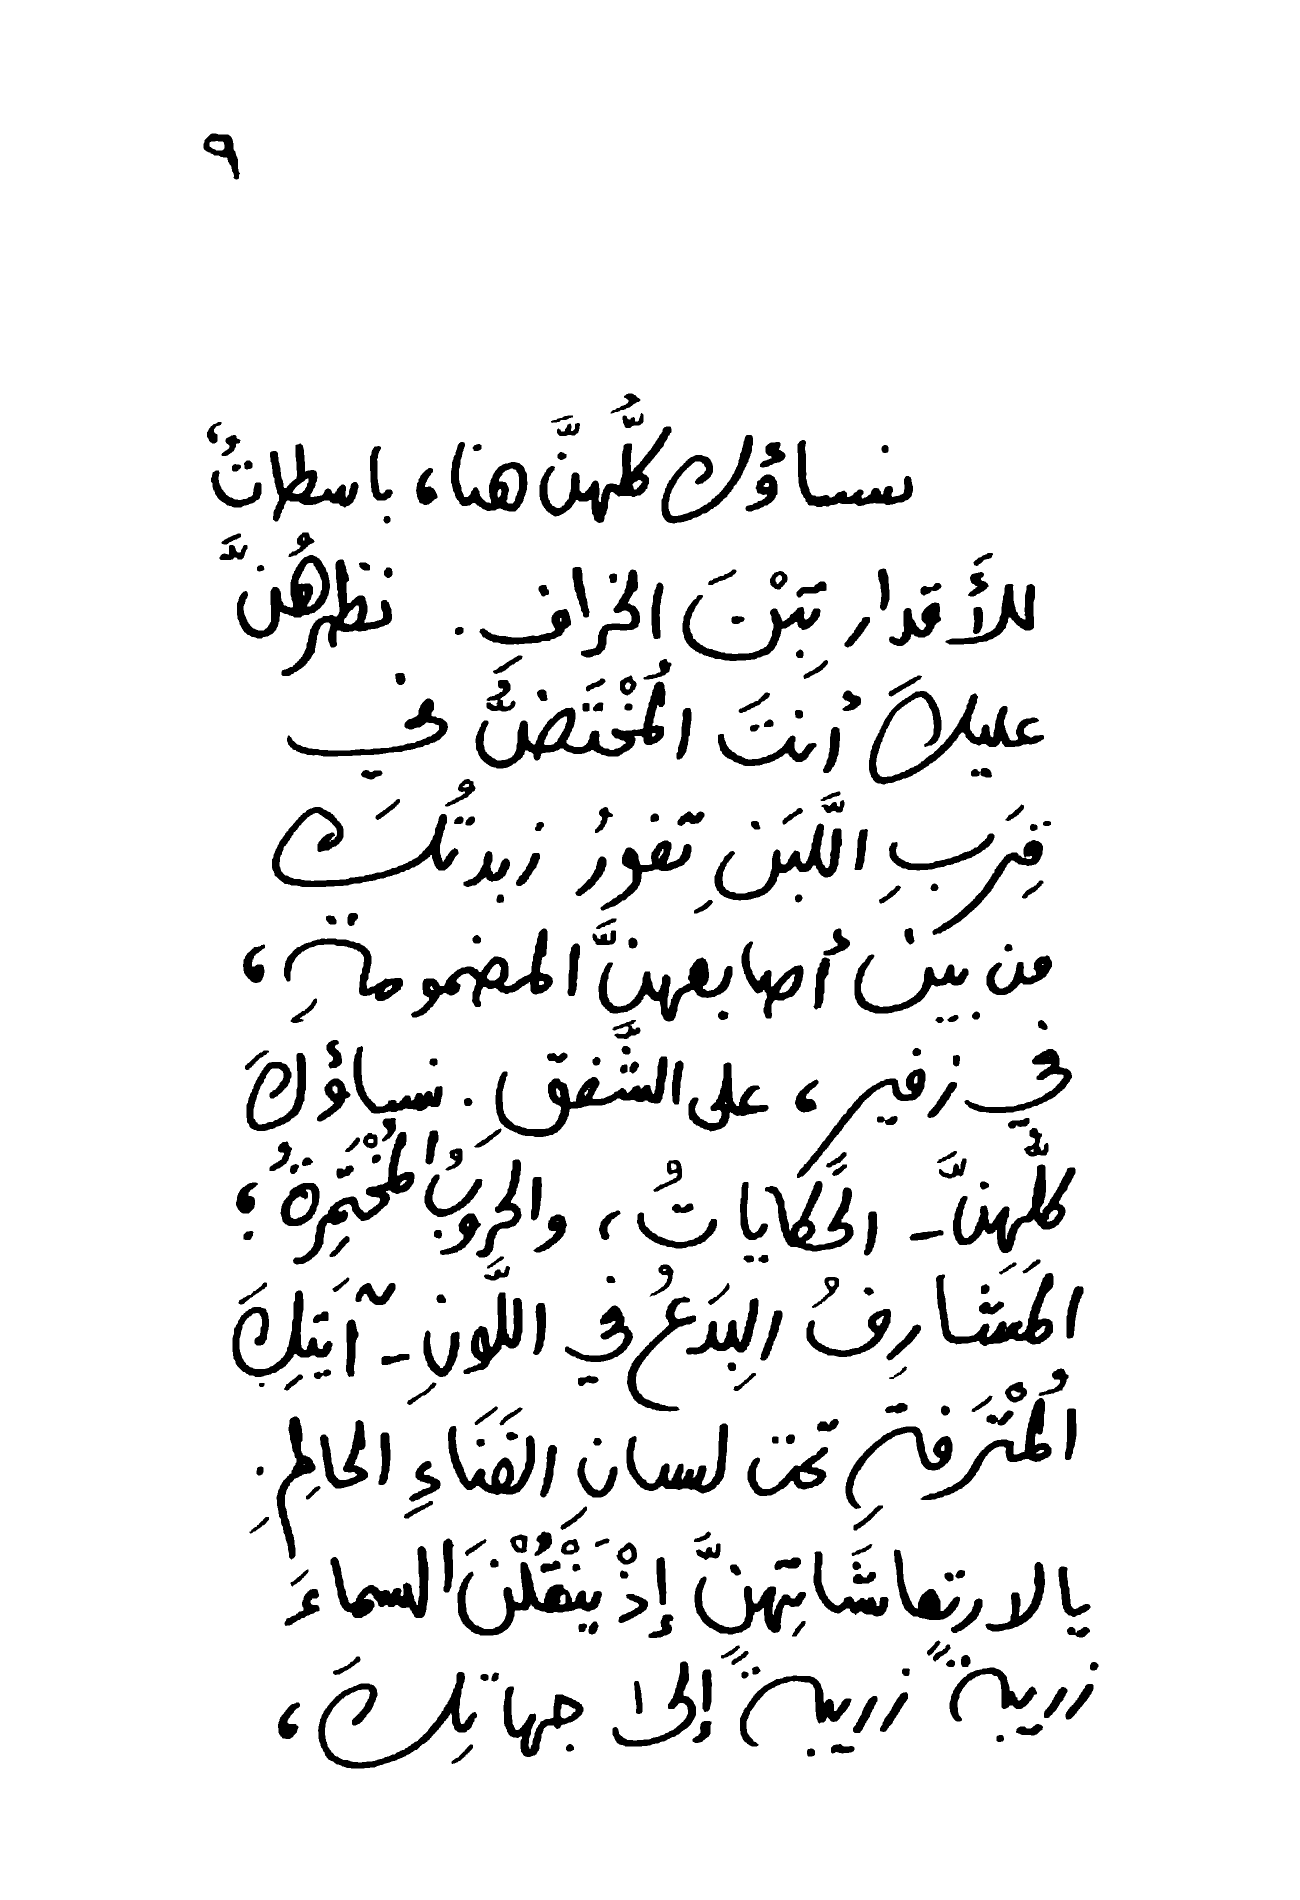 ٩
نساؤك كلُّهنَّ هنا، باسطاتٌ
للأَقدار تِبْنَ الخراف. نظرهُنَّ
عليكَ أنتَ المُخْتَضَّ في
قِرَبِ اللَّبَنِ تفورُ زبدتُكَ
من بين أصابعهنَّ المضمومةِ،
في زفيرٍ، على الشَّفقِ. نساؤكَ
كلُّهنَّ ـ الحكاياتُ، والحروبُ المُخْتَمِرةُ؛
المَشَارِفُ البِدَعُ في اللَّونِ ـ آيَتِكَ
المُتْرَفةِ تحت لسانِ الفَنَاءِ الحالِمِ.
يا لارتعاشَاتِهنَّ إذْ يَنْقُلْنَ السماءَ
زريبةً زريبةً إلى جهاتِكَ،